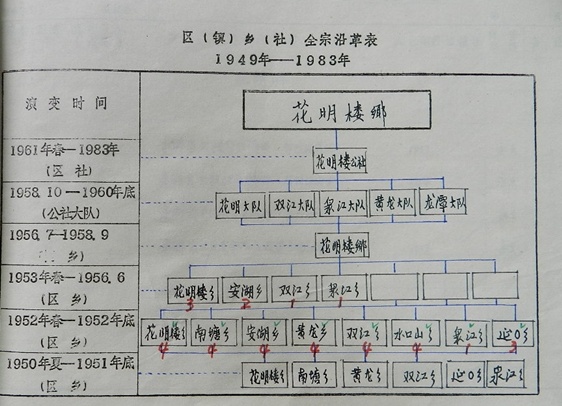 区（镇）乡（社）全宗沿革表
1949年——1983年
演变时间
花明楼乡
1961年春—1983年
（区 社）
花明楼公社
1958.10—1960年底
（公社大队）
花明大队 双江大队 泉江大队 黄龙大队 龙潭大队
1956.7—1958.9
乡）
花明楼鄉
1953年春—1956.6
（区 乡）
花明楼乡 安湖乡 双江乡 泉江乡
3 2 1 1
1952年春—1952年底
（区 乡）
花明楼乡 南塘乡 安湖乡 黄龙乡 双江乡 水口山 泉江乡
4 4 4 4 4 4 1 3
1950年夏—1951年底
（区 乡）
花明楼乡 南塘乡 黄龙乡 双江乡 泉江乡